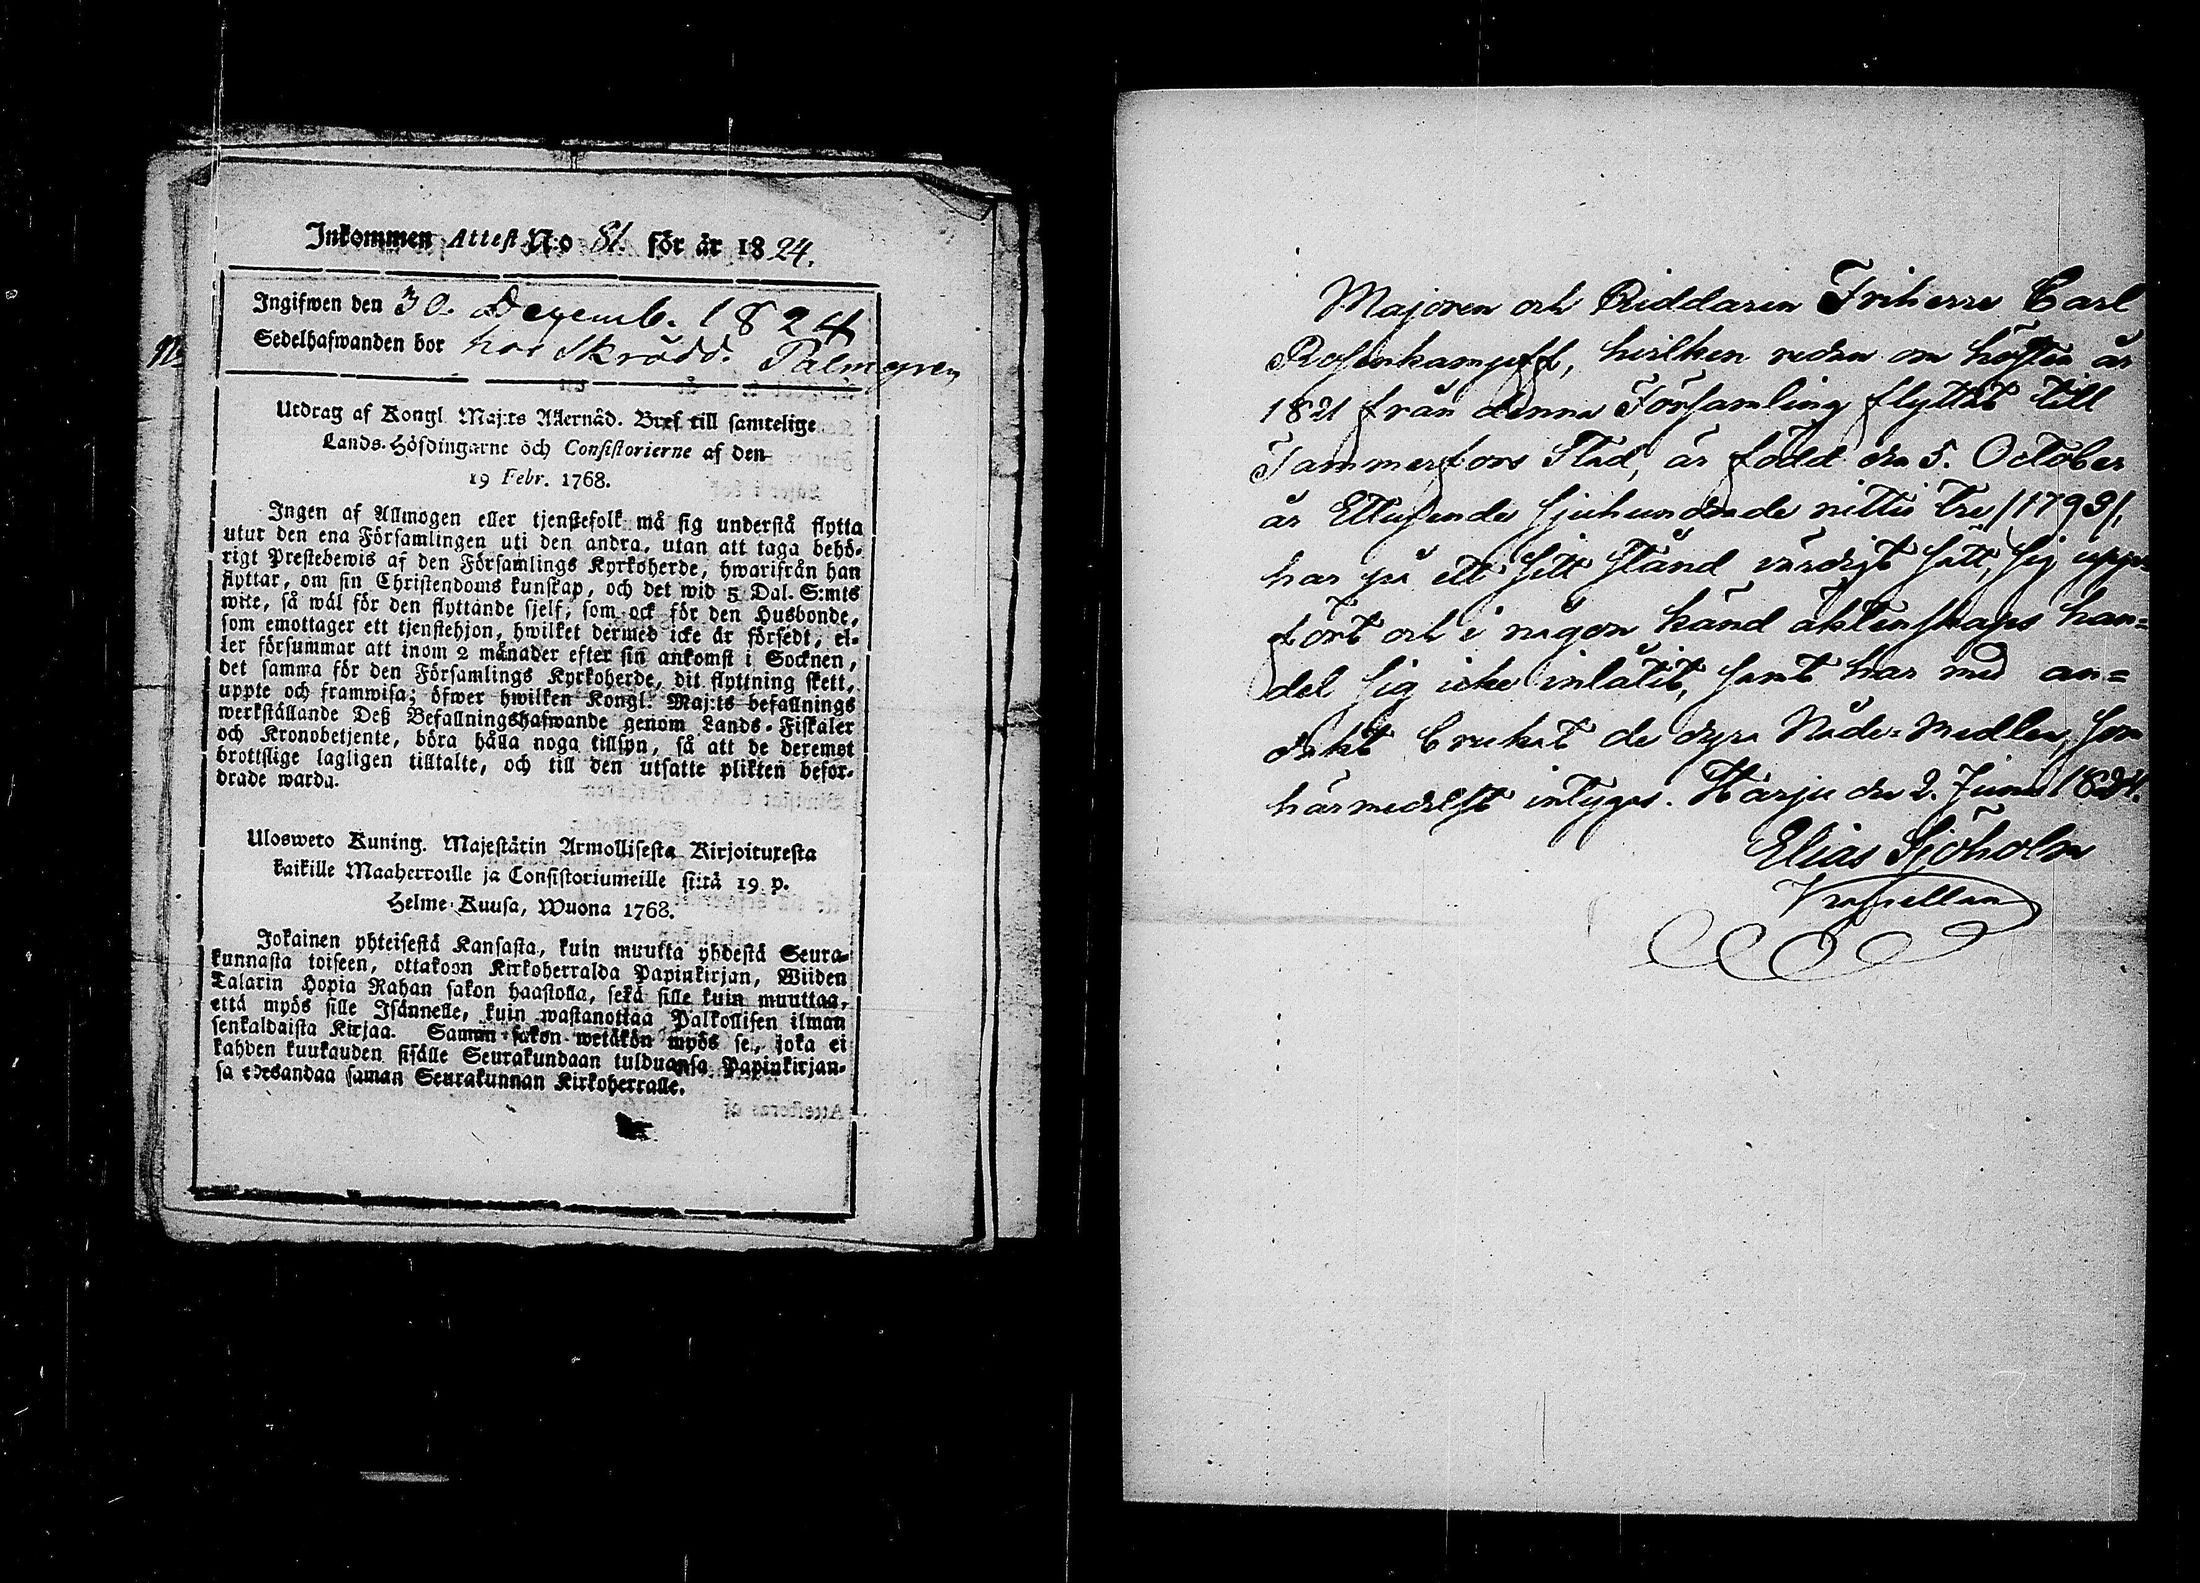 Inkommen Attest N:o 81. för år 1824.
Ingifwen den 30. Decemb. 1824
Sedelhafwanden bor hos Skrädd. Palmgren
Utdrag af Kongl. Maj:ts Allernåd. Bref till samtelige
Lands-Höfdingarne och Consistorierne af den
19 Febr. 1768.
Ingen af Allmogen eller tjenstefolk må sig understå flytta
utur den ena Församlingen uti den andra, utan att taga behö-
rigt Prestebewis af den Församlings Kyrkoherde, hwarifrån han
flyttar, om sin Christendoms kunskap, och det wid 5 Dal. S:mts
wite, så wäl för den flyttande sjelf, som ock för den Husbonde,
som emottager ett tjenstehjon, hwilket dermed icke är försedt, el-
ler försummar att inom 2 månader efter sin ankomst i Socknen,
det samma för den Församlings Kyrkoherde, dit flyttning skett,
uppte och framwisa; öfwer hwilken Kongl. Maj:ts befallnings
werkställande Deß Befallningshafwande genom Lands-Fiskaler
och Kronobetjente, böra hålla noga tillsyn, så att de deremot
brottslige lagligen tilltalte, och till den utsatte plikten befor-
drade warda.
Ulosweto Kuning. Majestätin Armollisesta Kirjoituxesta
kaikille Maaherroille ja Consistoriumeille siitä 19 p.
Helme-Kuusa, Wuona 1768.
Jokainen yhteisestä Kansasta, kuin muutta yhdestä Seura-
kunnasta toiseen, ottakoon Kirkoherralda Papinkirjan, Wiiden
Talarin Hopia Rahan sakon haastolla, sekä sille kuin muuttaa,
että myös sille Isännelle, kuin wastanottaa Palkollisen ilman
senkaldaista Kirjaa. Saman sakon wetäkön myös se, joka ei
kahden kuukauden sisälle Seurakundaan tulduansa Papinkirjan-
sa edesandaa saman Seurakunnan Kirkoherralle.
Majoren och Riddaren Friherre Carl
Rosenkampff, hvilken redan om hösten år
1821 från denna Församling flyttat till
Tammerfors Stad, är född den 5. October
år Ettusende sjuhundrade nittio tre /1793/,
har på ett sitt stånd värdigt sätt, sig upp-
fört och i någon känd äktenskaps han=
del sig icke inlåtit, samt har med an=
dakt brukat de dyra Nåde=Medlen, som
härmedelst intygas. Harju den 2. Junii 1824.
Elias Sjöholm